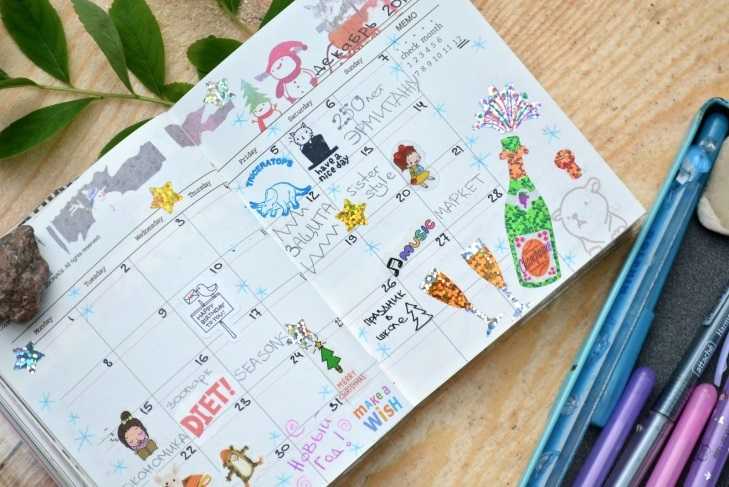 Декабрь 20
MEMO
check month
1 2 3 4 5 6
7 8 9 10 11 12
Monday Tuesday Wednesday Thursday Friday Saturday Sunday
1 2 3 4 5 6 7
TRICERATOPS
have a
nice day
250 лет
ЭРМИТАЖУ
8 9 10 11 12 13 14
HAPPY
BIRTHDAY
TO YOU!
ЗАЩИТА
sister
style
15 16 17 18 19 20 21
ЭКОНОМИКА
зоопарк
DIET!
SEASONS
MUSIC
МАРКЕТ
22 23 24 26 27 28
ПРАЗДНИК
В
ШКОЛЕ
30 31
НОВЫЙ
ГОД!
MERRY
CHRISTMAS
MAKE A
WiSH
All rights reserved